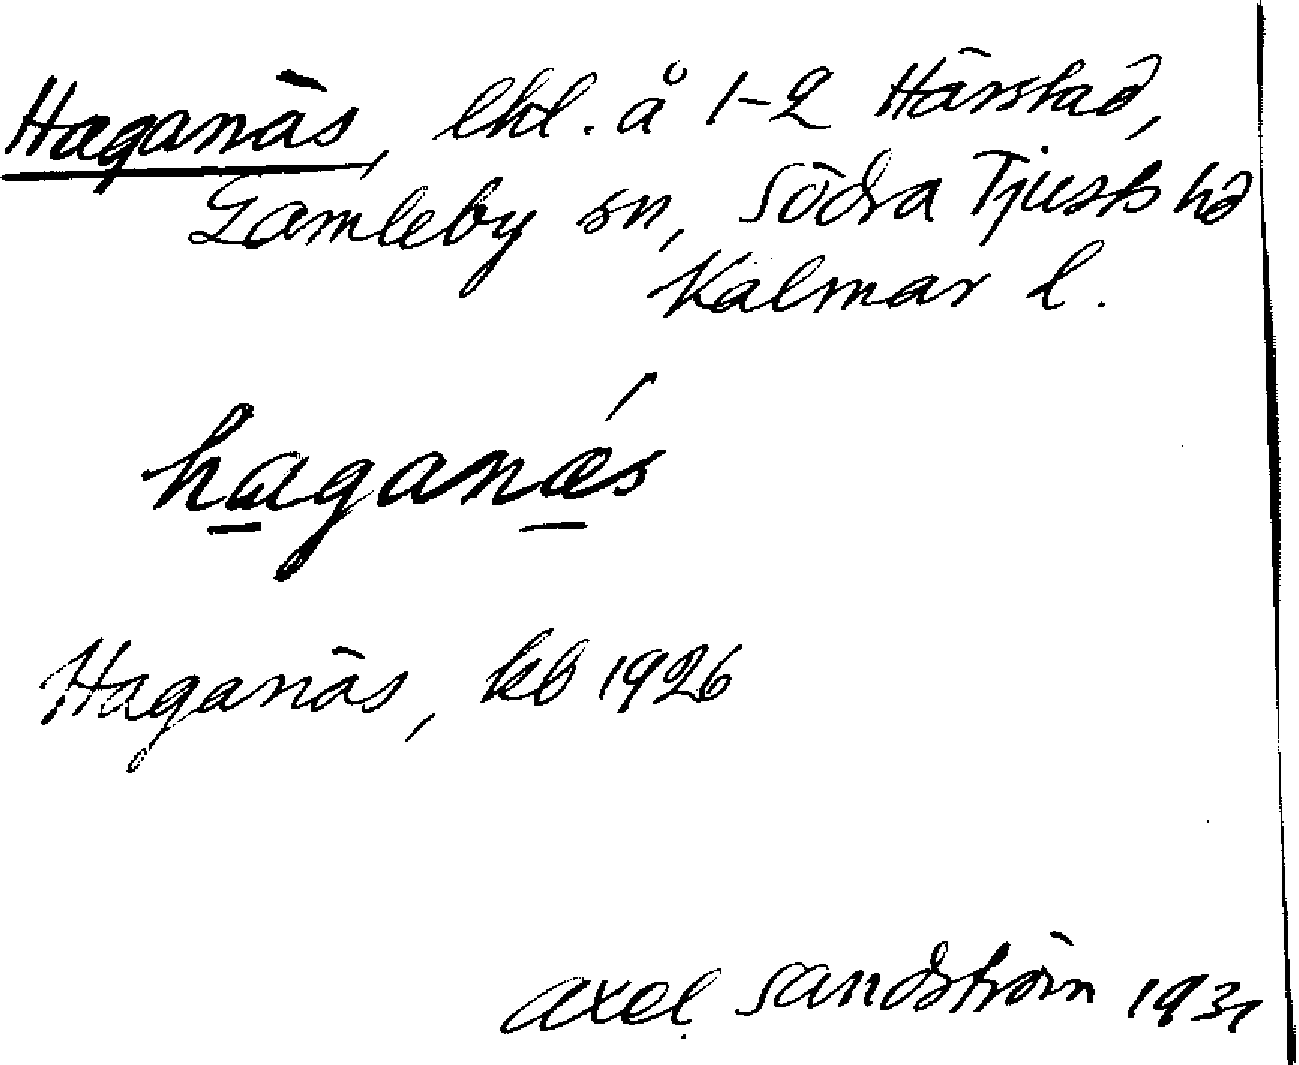 Haganäs, lht. å 1-2 Härstad,
Gamleby sn, Södra Tjusts hd
Kalmar l.
haganæs
Haganäs, kb 1926
Axel Sandström 1931